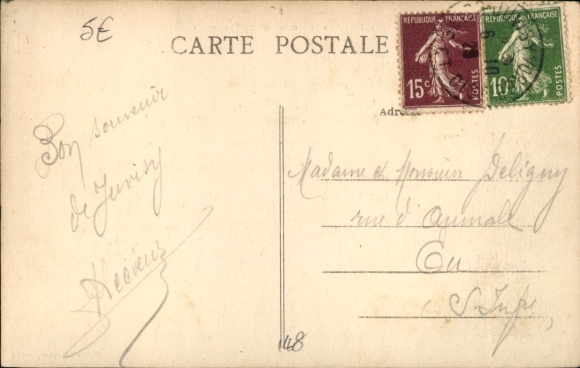 5€
CARTE POSTALE
REPUBLIQUE FRANÇAISE
15c
POSTES
REPUBLIQUE FRANÇAISE
10c
POSTES
Adresse
Bon souvenir
de Juvisy
Madame & Monsieur Deligny
rue d'Aumale
Eu
S. Infre
48